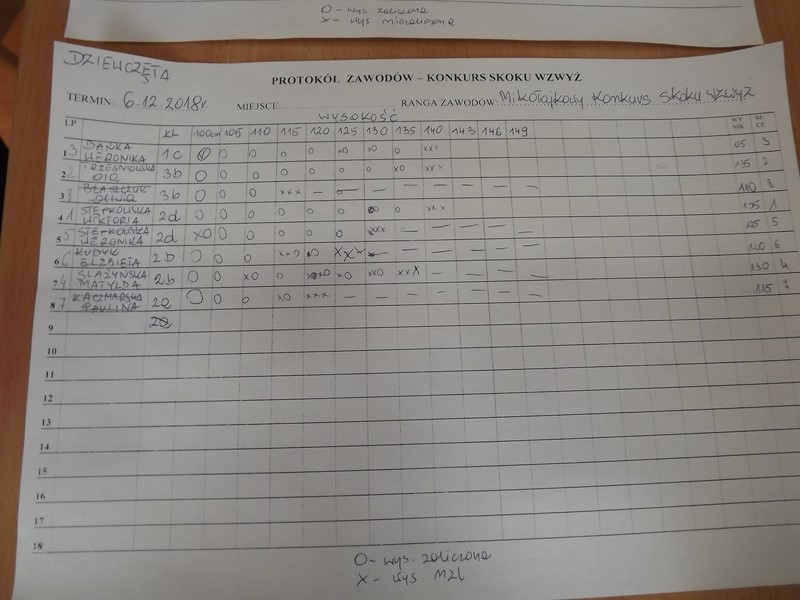 O - wys zaliczona
X - wys niezaliczona
DZIEWCZĘTA
PROTOKÓŁ ZAWODÓW – KONKURS SKOKU WZWYŻ
TERMIN: 6.12.2018r. MIEJSCE: RANGA ZAWODÓW: Mikołajkowy Konkurs skoku wzwyż
WYSOKOŚĆ
LP KL 100cm 105 110 115 120 125 130 135 140 143 146 149 WYNIK
1 3 BAŃKA WERONIKA 1c O O O o o xo xo o xxx 135 3
2 2 OLA 3b O O O o o o o xo xxx 135 2
3 8 OLIWIA 3b O O O xxx – – – – – – – – 110 8
4 1 STĘPKOWSKA WIKTORIA 2d O O O o o o o o xxx 135 1
5 5 STĘPKOWSKA WERONIKA 2d XO O O o o o xxx – – – – – 125 5
6 6 KUDYK ELŻBIETA 2b O O O xxo xo XXX – – – – – – 120 6
7 4 ŚLAŻYŃSKA MATYLDA 2b O O XO o xxo xo xxo xxx – – – – 130 4
8 7 KACZMARSKA PAULINA 2a O O O xo xxx – – – – – – – 115 7
9
10
11
12
13
14
15
16
17
18
O - wys. zaliczona
X - wys. nzl